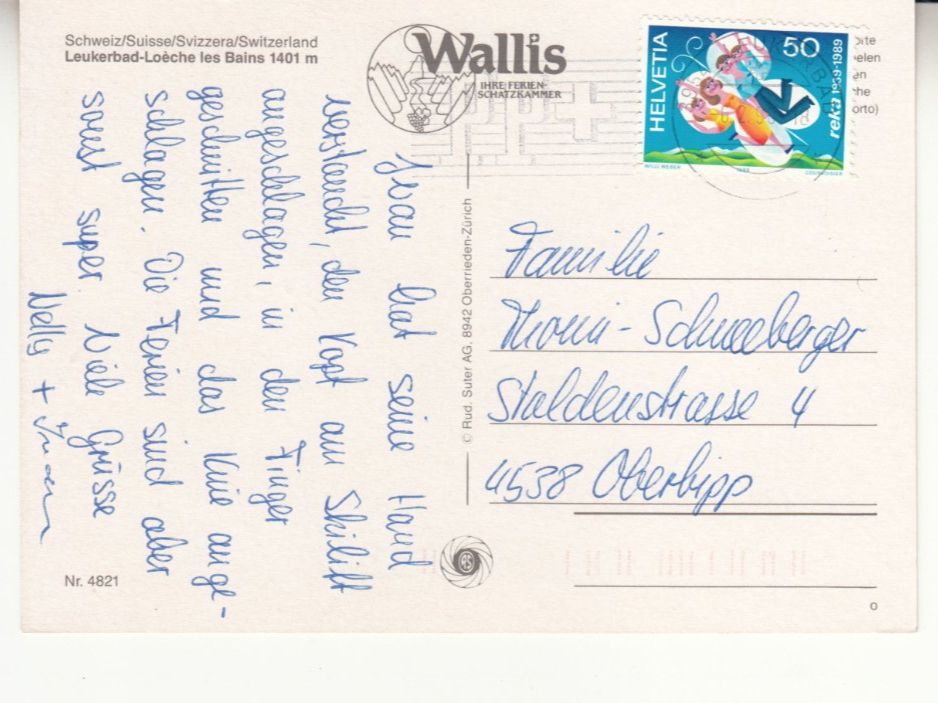 Schweiz/Suisse/Svizzera/Switzerland
Leukerbad-Loèche les Bains 1401 m
Wallis
IHRE FERIEN-
SCHATZKAMMER
HELVETIA
50
reka 1939-1989
WILLI WEBER
1989
COURVOISIER
ite
elen
en
he
orto)
hat seine Hand
verstaucht, den Kopf am Skilift
angeschlagen, in den Finger
geschnitten und das Knie aufge-
schlagen. Die Ferien sind aber
sonst super. Viele Grüsse
Nelly +
© Rud. Suter AG, 8942 Oberrieden-Zürich
Familie
Thomi-Schneeberger
Staldenstrasse 4
4538 Oberbipp
Nr. 4821